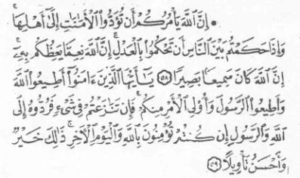 • إِنَّ ٱللَّهَ يَأْمُرُكُمْ أَن تُؤَدُّوا۟ ٱلْأَمَٰنَٰتِ إِلَىٰٓ أَهْلِهَا
وَإِذَا حَكَمْتُم بَيْنَ ٱلنَّاسِ أَن تَحْكُمُوا۟ بِٱلْعَدْلِ ۚ إِنَّ ٱللَّهَ نِعِمَّا يَعِظُكُم بِهِۦٓ ۗ
إِنَّ ٱللَّهَ كَانَ سَمِيعًۢا بَصِيرًا ۝٥٨ يَٰٓأَيُّهَا ٱلَّذِينَ ءَامَنُوٓا۟ أَطِيعُوا۟ ٱللَّهَ
وَأَطِيعُوا۟ ٱلرَّسُولَ وَأُو۟لِى ٱلْأَمْرِ مِنكُمْ ۖ فَإِن تَنَٰزَعْتُمْ فِى شَىْءٍ فَرُدُّوهُ إِلَى
ٱللَّهِ وَٱلرَّسُولِ إِن كُنتُمْ تُؤْمِنُونَ بِٱللَّهِ وَٱلْيَوْمِ ٱلْءَاخِرِ ۚ ذَٰلِكَ خَيْرٌ
وَأَحْسَنُ تَأْوِيلًا ۝٥٩